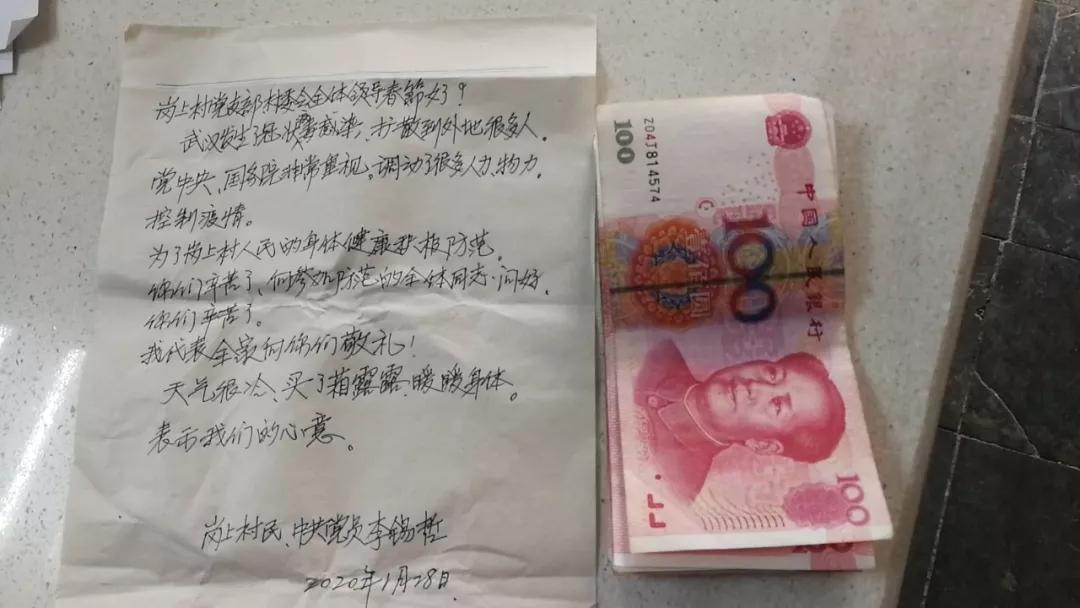 岗上村党支部村委会全体领导春节好?
武汉发生了冠状毒感染,扩散到外地很多人.
党中央、国务院非常重视。调动了很多人力.物力.
控制疫情。
为了岗上村人民的身体健康积极防范.
你们辛苦了、向参加防范的全体同志.问好.
你们辛苦了。
我代表全家向你们敬礼!
天气很冷、买了箱露露.暖暖身体。
表示我们的心意。
岗上村民、中共党员李锡哲
2020年1月28日.
100
Z04J814574
中国人民银行
100
壹佰圆
100